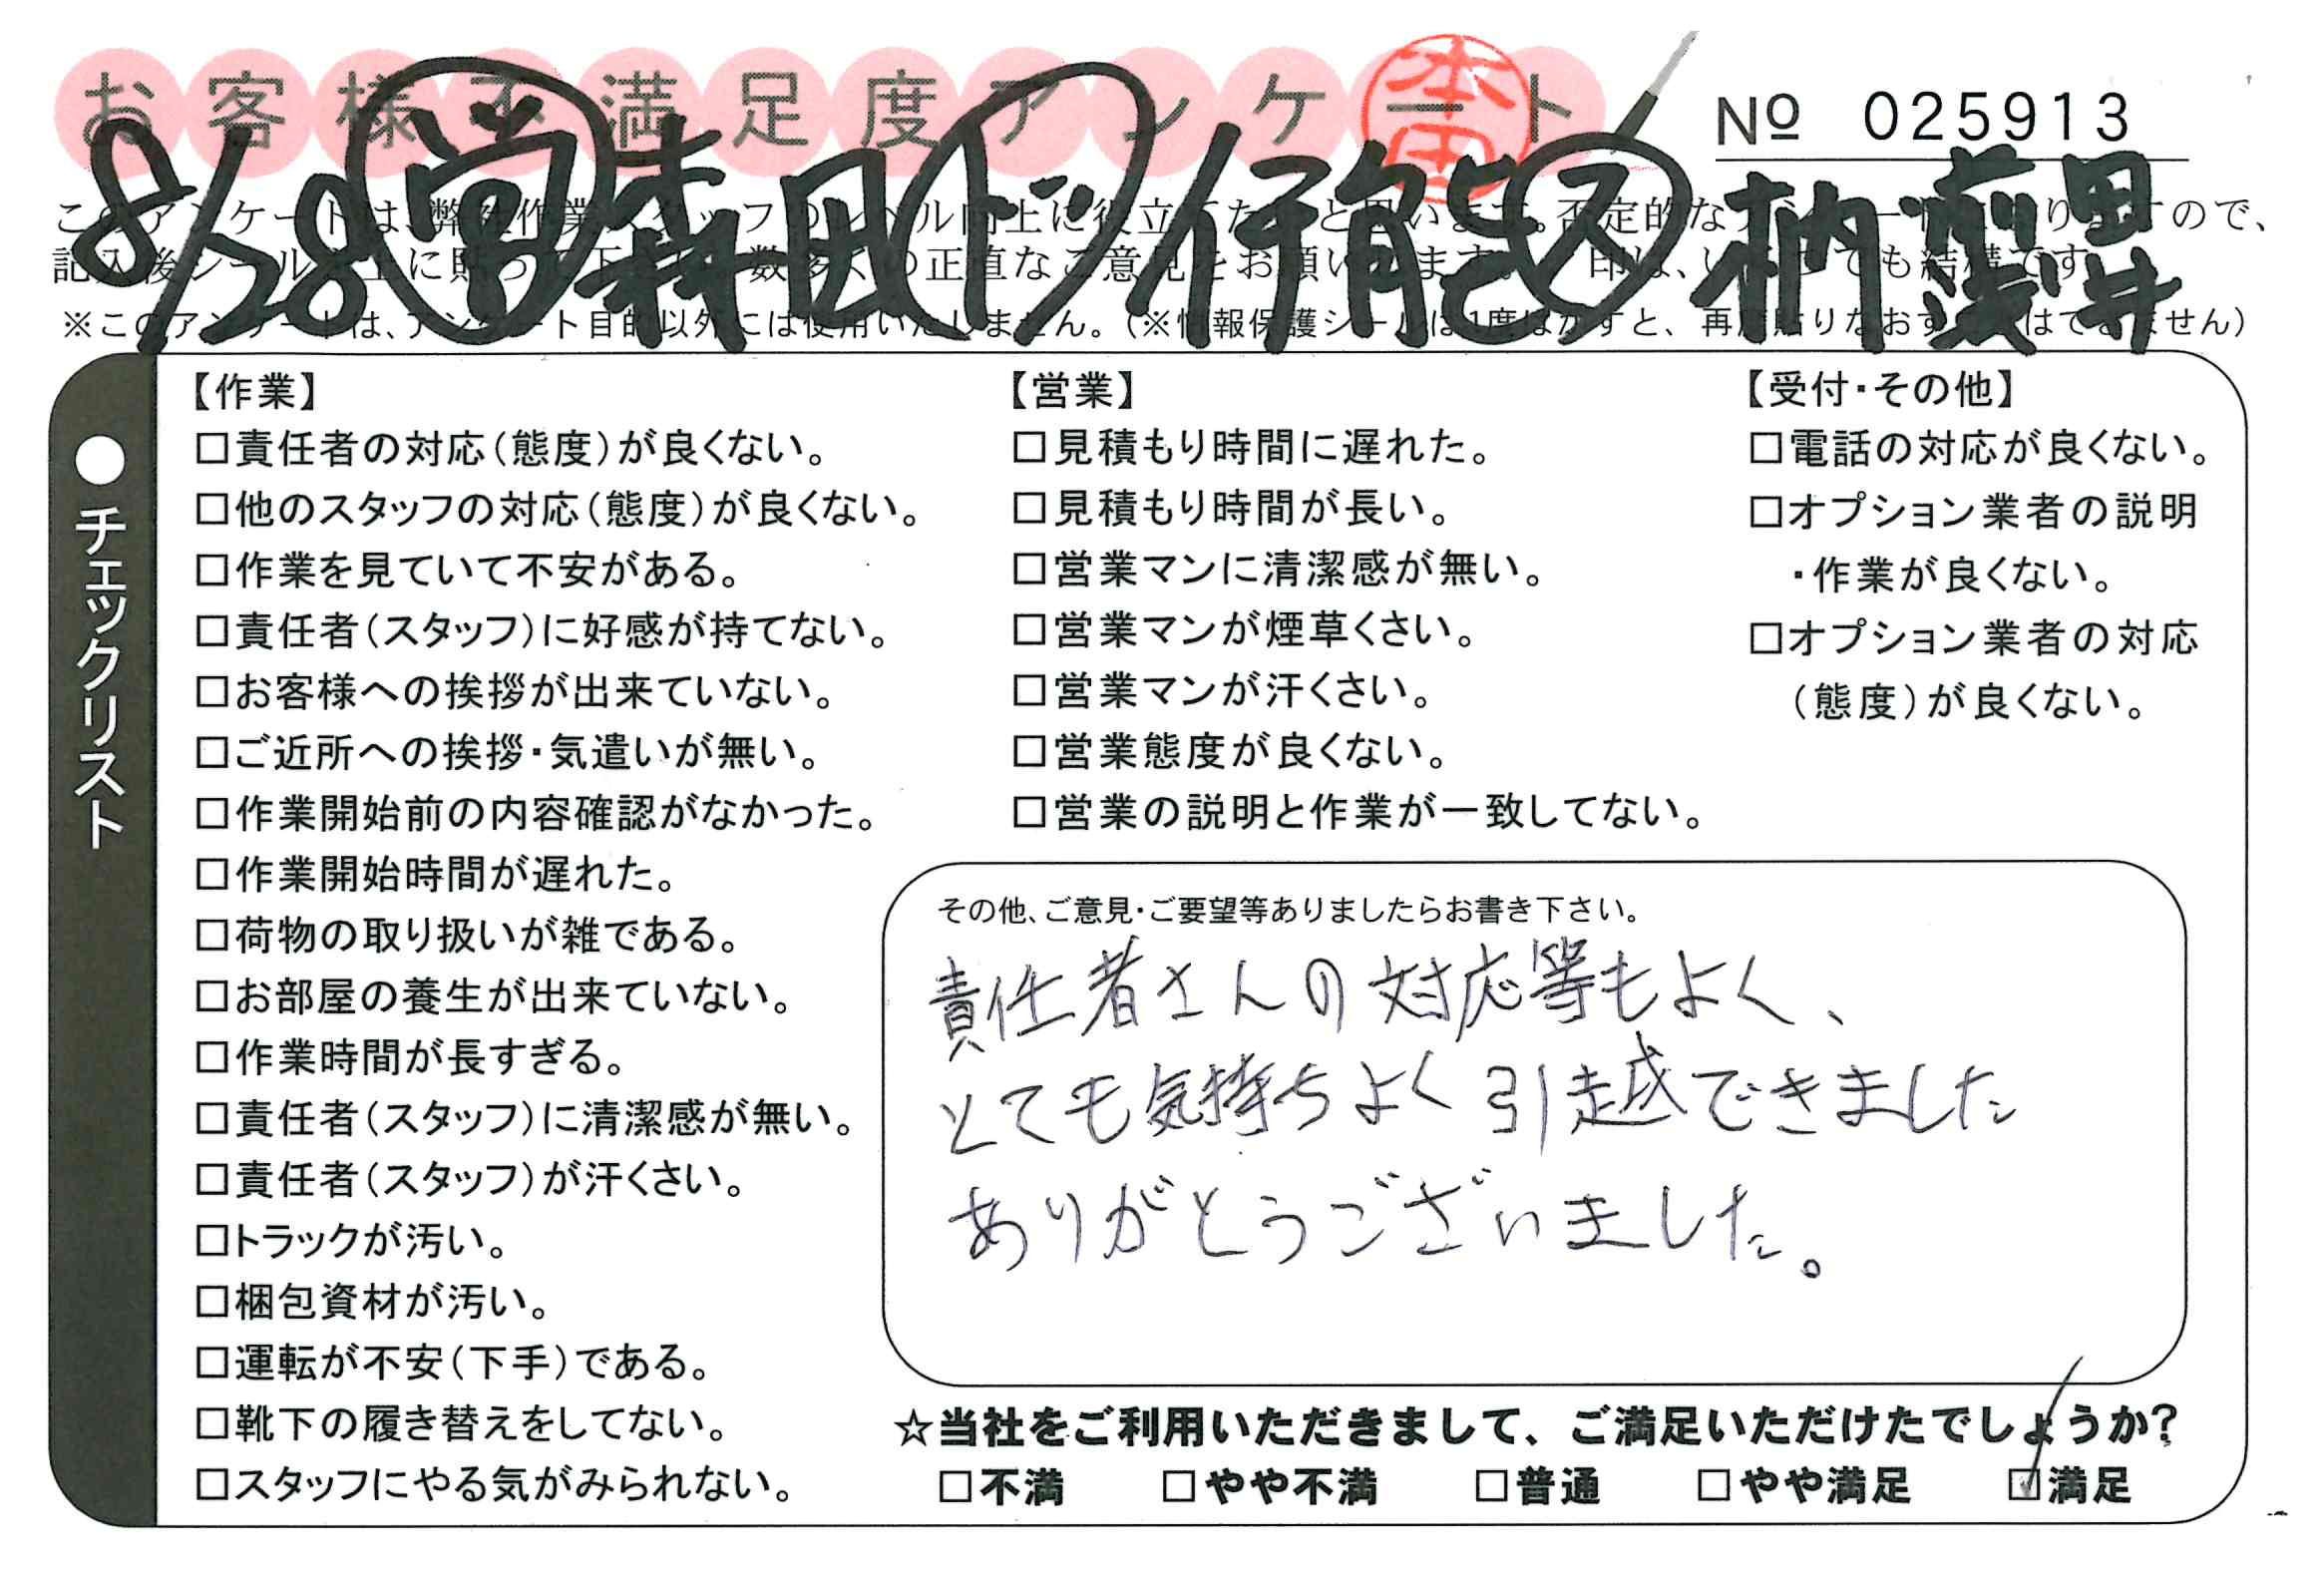 お客様不満足度アンケート
本田
№ 025913
8/28 営 森田 ド 伊能 ス 柄
このアンケートは、弊社作業スタッフのレベル向上に役立てたいと思います。否定的なアンケートになりますので、
記入後シールを上に貼って下さい。数多くの正直なご意見をお願いします。
※このアンケートは、アンケート目的以外には使用いたしません。(※情報保護シールは1度はがすと、再度貼りなおすことはできません)
●チェックリスト
【作業】
□責任者の対応(態度)が良くない。
□他のスタッフの対応(態度)が良くない。
□作業を見ていて不安がある。
□責任者(スタッフ)に好感が持てない。
□お客様への挨拶が出来ていない。
□ご近所への挨拶・気遣いが無い。
□作業開始前の内容確認がなかった。
□作業開始時間が遅れた。
□荷物の取り扱いが雑である。
□お部屋の養生が出来ていない。
□作業時間が長すぎる。
□責任者(スタッフ)に清潔感が無い。
□責任者(スタッフ)が汗くさい。
□トラックが汚い。
□梱包資材が汚い。
□運転が不安(下手)である。
□靴下の履き替えをしてない。
□スタッフにやる気がみられない。
【営業】
□見積もり時間に遅れた。
□見積もり時間が長い。
□営業マンに清潔感が無い。
□営業マンが煙草くさい。
□営業マンが汗くさい。
□営業態度が良くない。
□営業の説明と作業が一致してない。
【受付・その他】
□電話の対応が良くない。
□オプション業者の説明
・作業が良くない。
□オプション業者の対応
(態度)が良くない。
その他、ご意見・ご要望等ありましたらお書き下さい。
責任者さんの対応等もよく、
とても気持ちよく引越できました
ありがとうございました。
☆当社をご利用いただきまして、ご満足いただけたでしょうか?
□不満 □やや不満 □普通 □やや満足 ☑満足